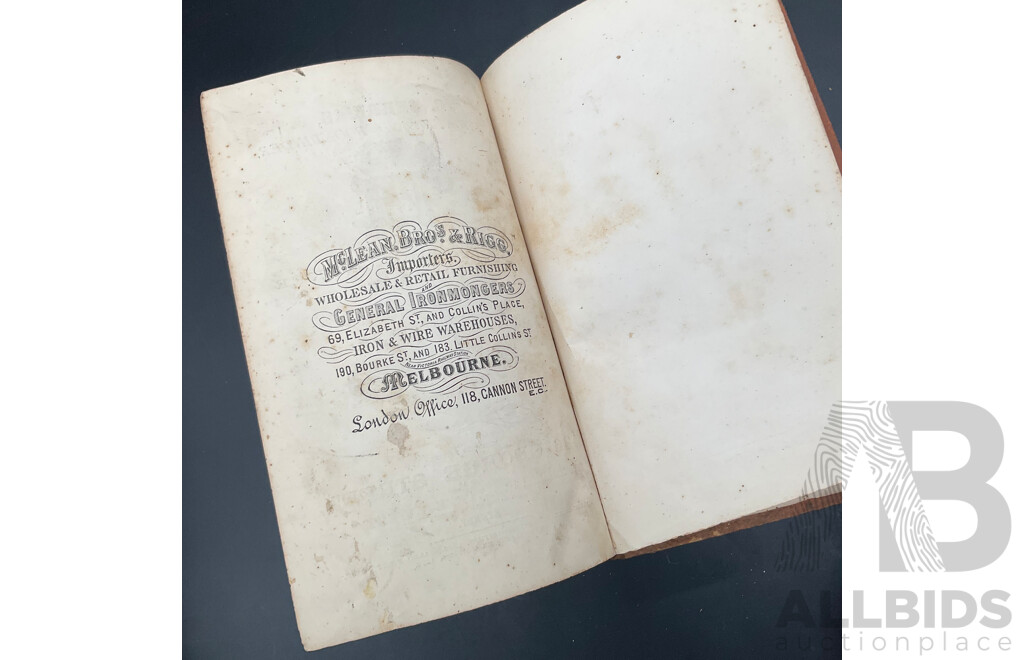 McLEAN, BROS & RIGG,
Importers,
WHOLESALE & RETAIL FURNISHING
AND
GENERAL IRONMONGERS
69, ELIZABETH ST, AND COLLIN'S PLACE,
IRON & WIRE WAREHOUSES,
190, BOURKE ST, AND 183, LITTLE COLLINS ST
NEAR VICTORIA RAILWAY STATION
MELBOURNE.
London Office, 118, CANNON STREET,
E.C.
AB
ALLBIDS
auctionplace